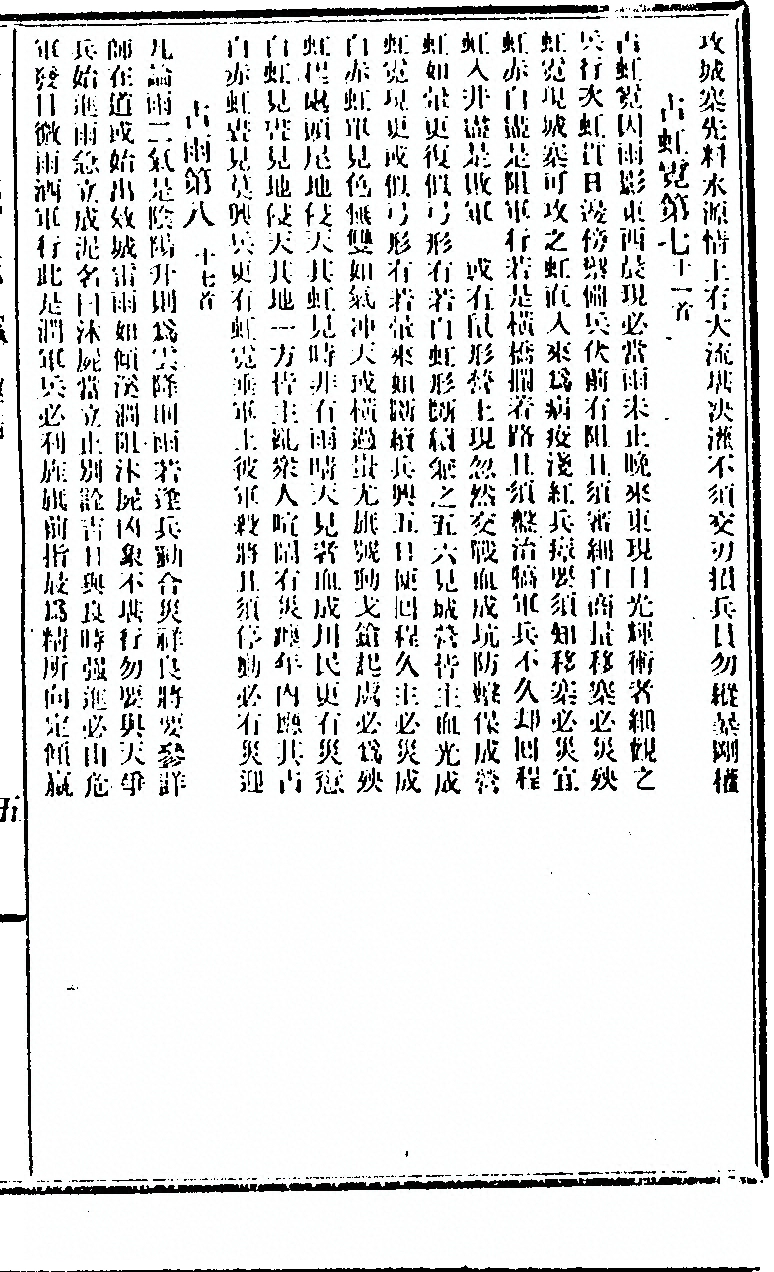 攻城寨先料水源情上有大流堪決灌不須交刃損兵員勿縱暴剛權
占虹霓第七十一首
占虹霓因雨影東西晨現必當雨未止晚來東現日光輝術者細觀之
兵行次虹貫日邊傍需備兵伏前有阻且須審細自商量移寨必災殃
虹霓現城寨可攻之虹直入來爲病疫淺紅兵瘴要須知移寨必災宜
虹赤白盡是阻軍行若是橫橋攔著路且須盤治犒軍兵不久却回程
虹入井盡是敗軍 或有鼠形營上現忽然交戰血成坑防變保成營
虹如暈更復似弓形有若白虹形斷續衆之五六見城營皆主血光成
虹霓現更或似弓形有若帶來如斷續兵興五日便回程久主必災成
白赤虹單見色無雙如氣沖天或橫過蚩尤旗號動戈鎗起處必爲殃
虹捏處頭尾地侵天其虹見時非有雨晴天見者血成川民更有災愆
白虹見畫見地侵天其地一方皆主亂衆人喧鬧有災纏年內應其占
白赤虹晝見莫興兵更有虹霓垂軍上彼軍殺將且須停動必有災迎
占雨第八 十七首
凡論雨二氣是陰陽升則爲雲降則雨若逢兵動合災祥良將要參詳
師在道或始出效城雷雨如傾溪澗阻沐屍凶象不堪行勿要與天爭
兵始進雨急立成泥名曰沐屍當立止別詮吉日與良時强進必由危
軍發日微雨洒軍行此是潤軍兵必利旌旗前指最爲精所向定傾嬴
五